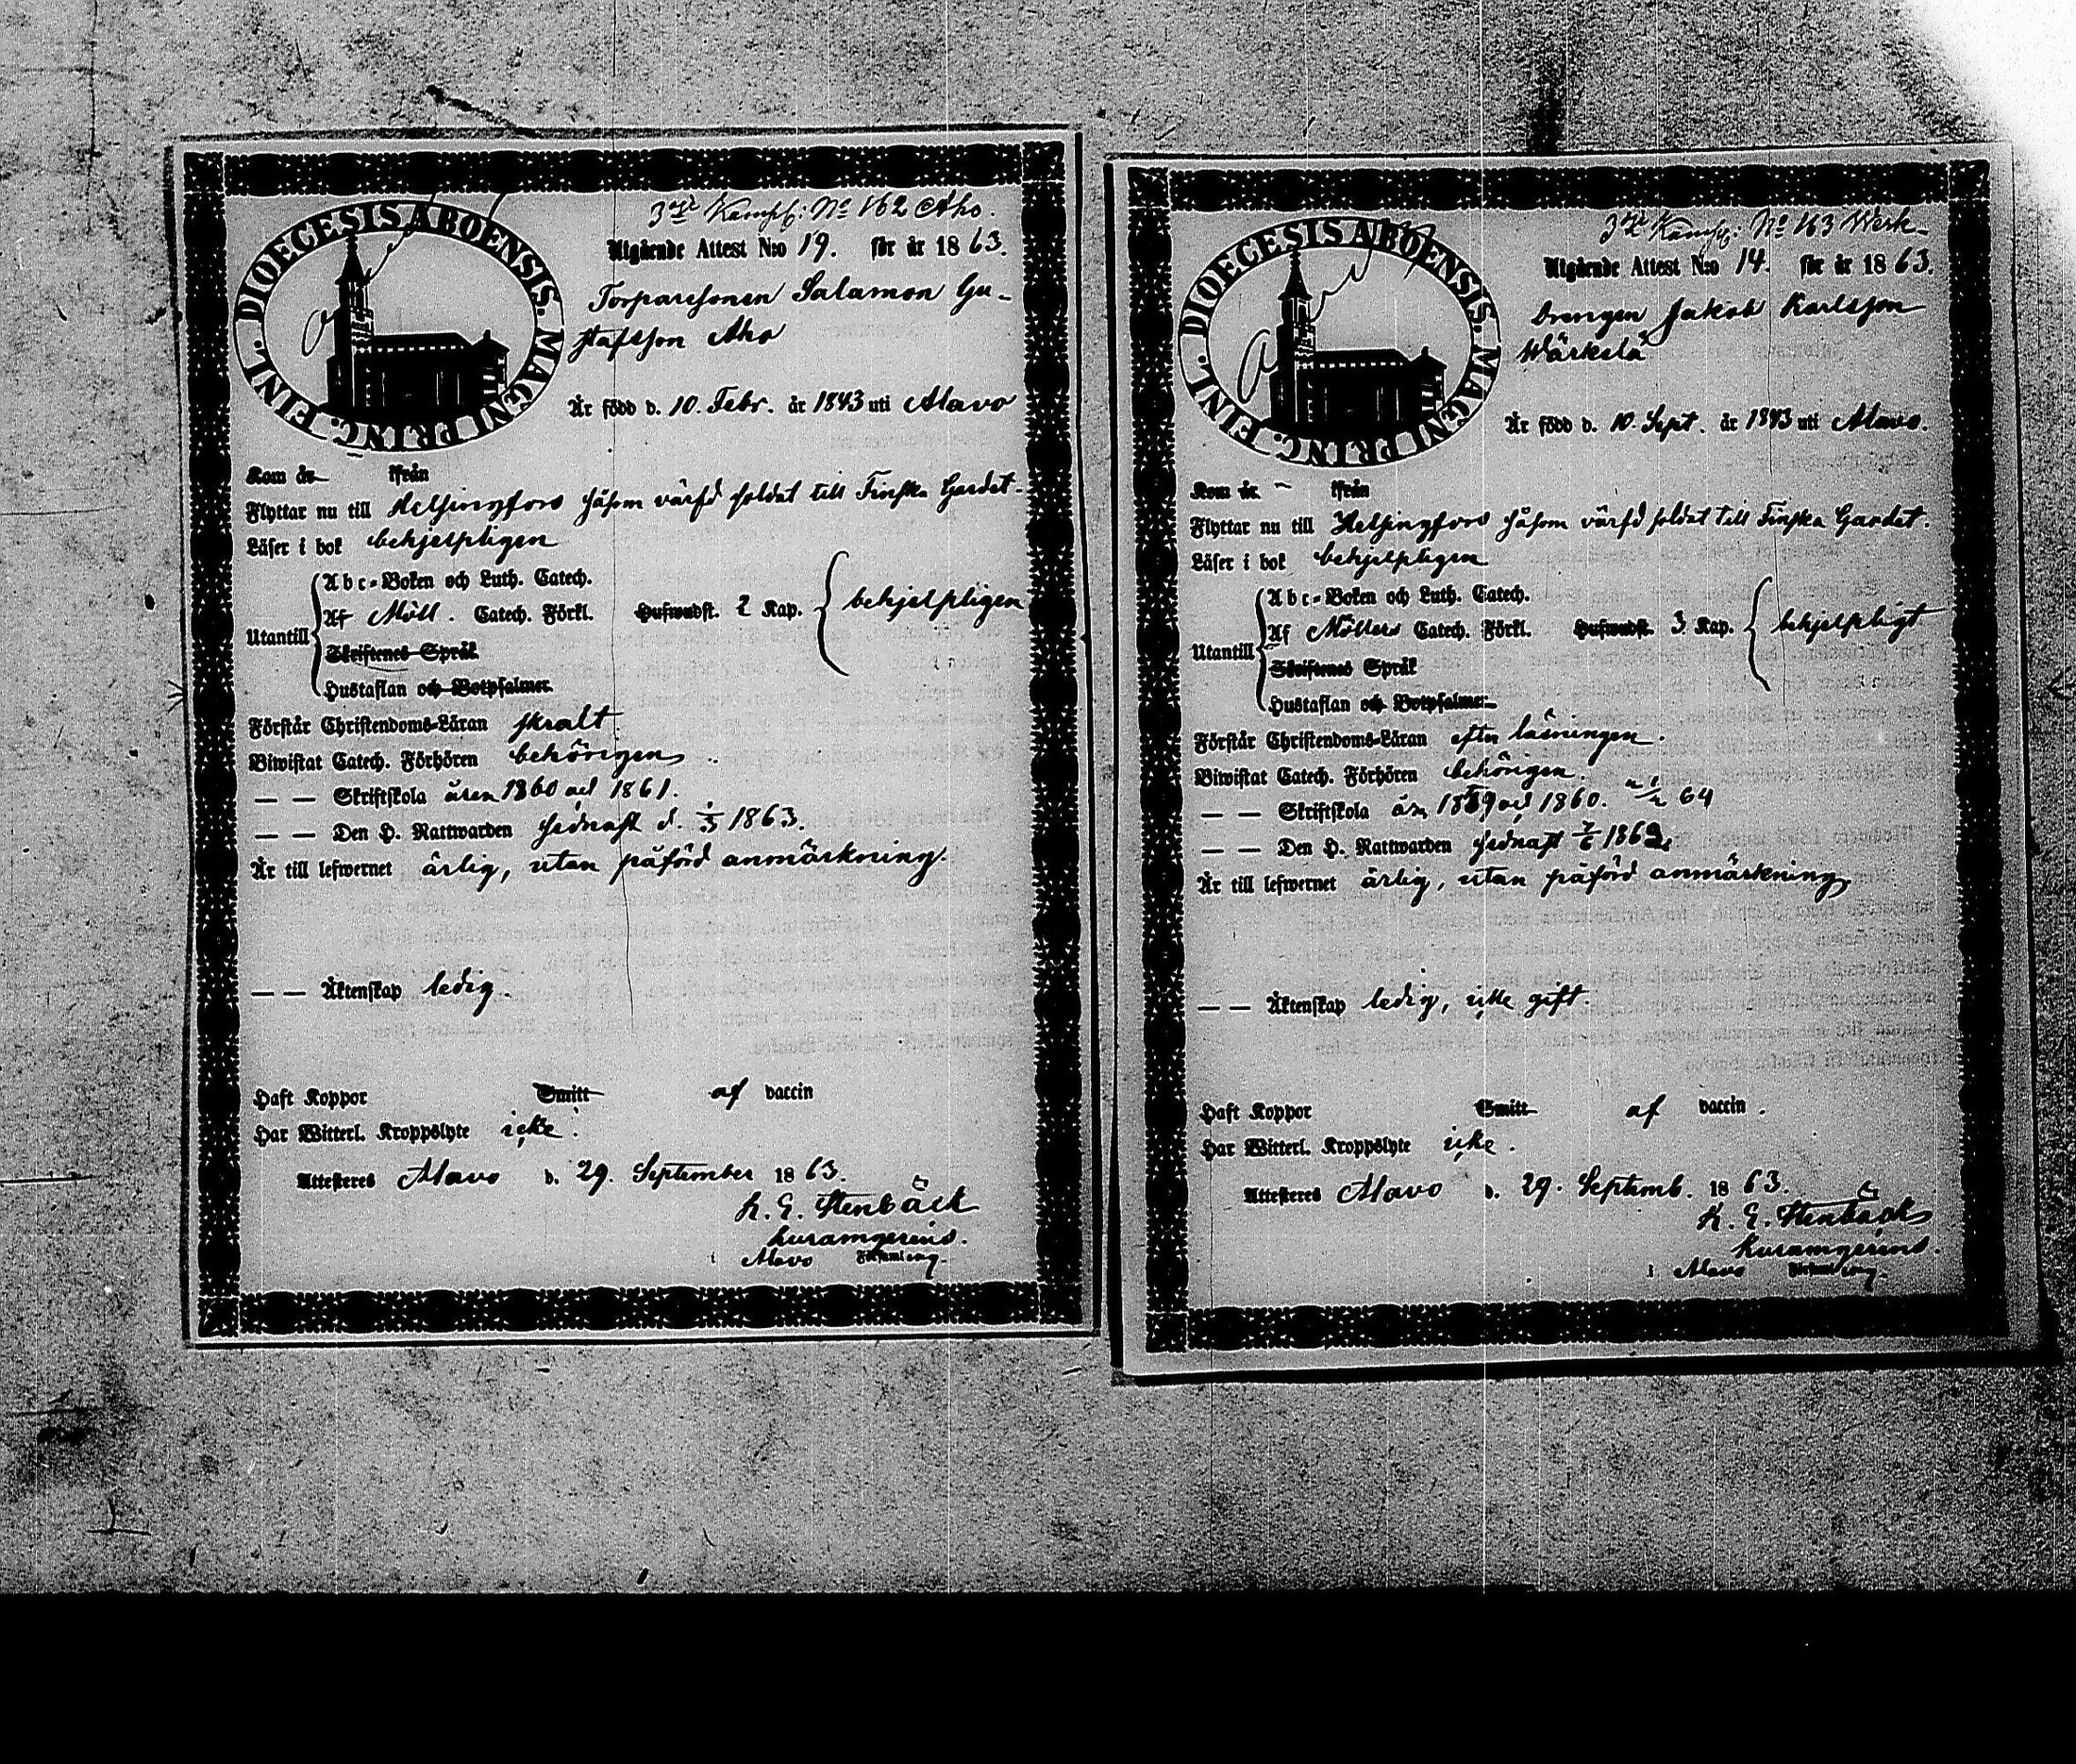 3dje Komp: No 162 Aho.
DIOECESIS ABOENSIS. MAGNI PRINC. FINL.
Utgående Attest N:o 19. för år 1863.
Torparesonen Salamon Gu-
stafsson Aho
Är född d. 10. Febr. år 1843 uti Alavo
Kom år ifrån
Flyttar nu till Helsingfors såsom värfd soldat till Finska Gardet.
Läser i bok behjelpligen
Utantill
Abc-Boken och Luth. Catech.
Af Möll. Catech. Förkl. Hufwudst. 2 Kap. behjelpligen
Skriftenes Språk
Hustaflan och Botpsalmer.
Förstår Christendoms-Läran skralt
Biwistat Catech. Förhören behörigen
— — Skriftskola åren 1860 och 1861.
— — Den H. Nattwarden sednast d. 1/3 1863.
Är till lefwernet ärlig, utan påförd anmärkning.
— — Äktenskap ledig.
Haft Koppor Smitt af vaccin
Har Witterl. Kroppslyte icke.
Attesteras Alavo d. 29. September 1863.
K. E. Stenbäck
kuramgerens.
i Alavo Församling.
3dje Komp: No 163 Werk-
DIOECESIS ABOENSIS. MAGNI PRINC. FINL.
Utgående Attest N:o 14. för år 1863.
Drengen Jakob Karlsson
Wärkelä
Är född d. 10. Sept. år 1843 uti Alavo.
Kom år. — ifrån
Flyttar nu till Helsingfors såsom värfd soldat till Finska Gardet.
Läser i bok behjelpligen
Utantill
Abc-Boken och Luth. Catech.
Af Möllers Catech. Förkl. Hufwudst. 3 Kap. behjelpligt
Skriftenes Språk
Hustaflan och Botpsalmer.
Förstår Christendoms-Läran efter läsningen.
Biwistat Catech. Förhören behörigen.
— — Skriftskola åren 1859 och 1860. 64
— — Den H. Nattwarden sednast 7/6 1863.
Är till lefwernet ärlig, utan påförd anmärkning
— — Äktenskap ledig, icke gift.
Haft Koppor Smitt af vaccin.
Har Witterl. Kroppslyte icke.
Attesteras Alavo d. 29. Septemb. 1863.
K. E. Stenbäck
kuramgerens.
i Alavo Församling.